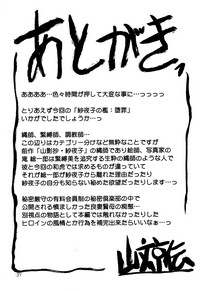 あとがき
あああああ…色々時間が押して大変な事に…っっっっ
とりあえず今回の「紗夜子の檻:堕罪」
いかがでしたでしょうか…っっ
縄師、緊縛師、調教師…
この辺りはカテゴリー分けなど無粋なことですが
今回の「山影紗・紗夜子」の縄師であり絵師、写真家の
竜 綜一郎は緊縛美を追究する生粋の縄師のような人で
彼と今回の和尚とで求めるものが違っていて
それが綜一郎が紗夜子から離れた理由だったり
紗夜子の自分も知らない秘めた欲望だったりします…っ
秘密厳守の有料会員制の秘密倶楽部の中で
公開される慎ましかった良妻賢母の痴態…
別視点の物語として本編では触れなかったりした
ヒロインの風情とか行為を補完出来たらいいな…っ
31